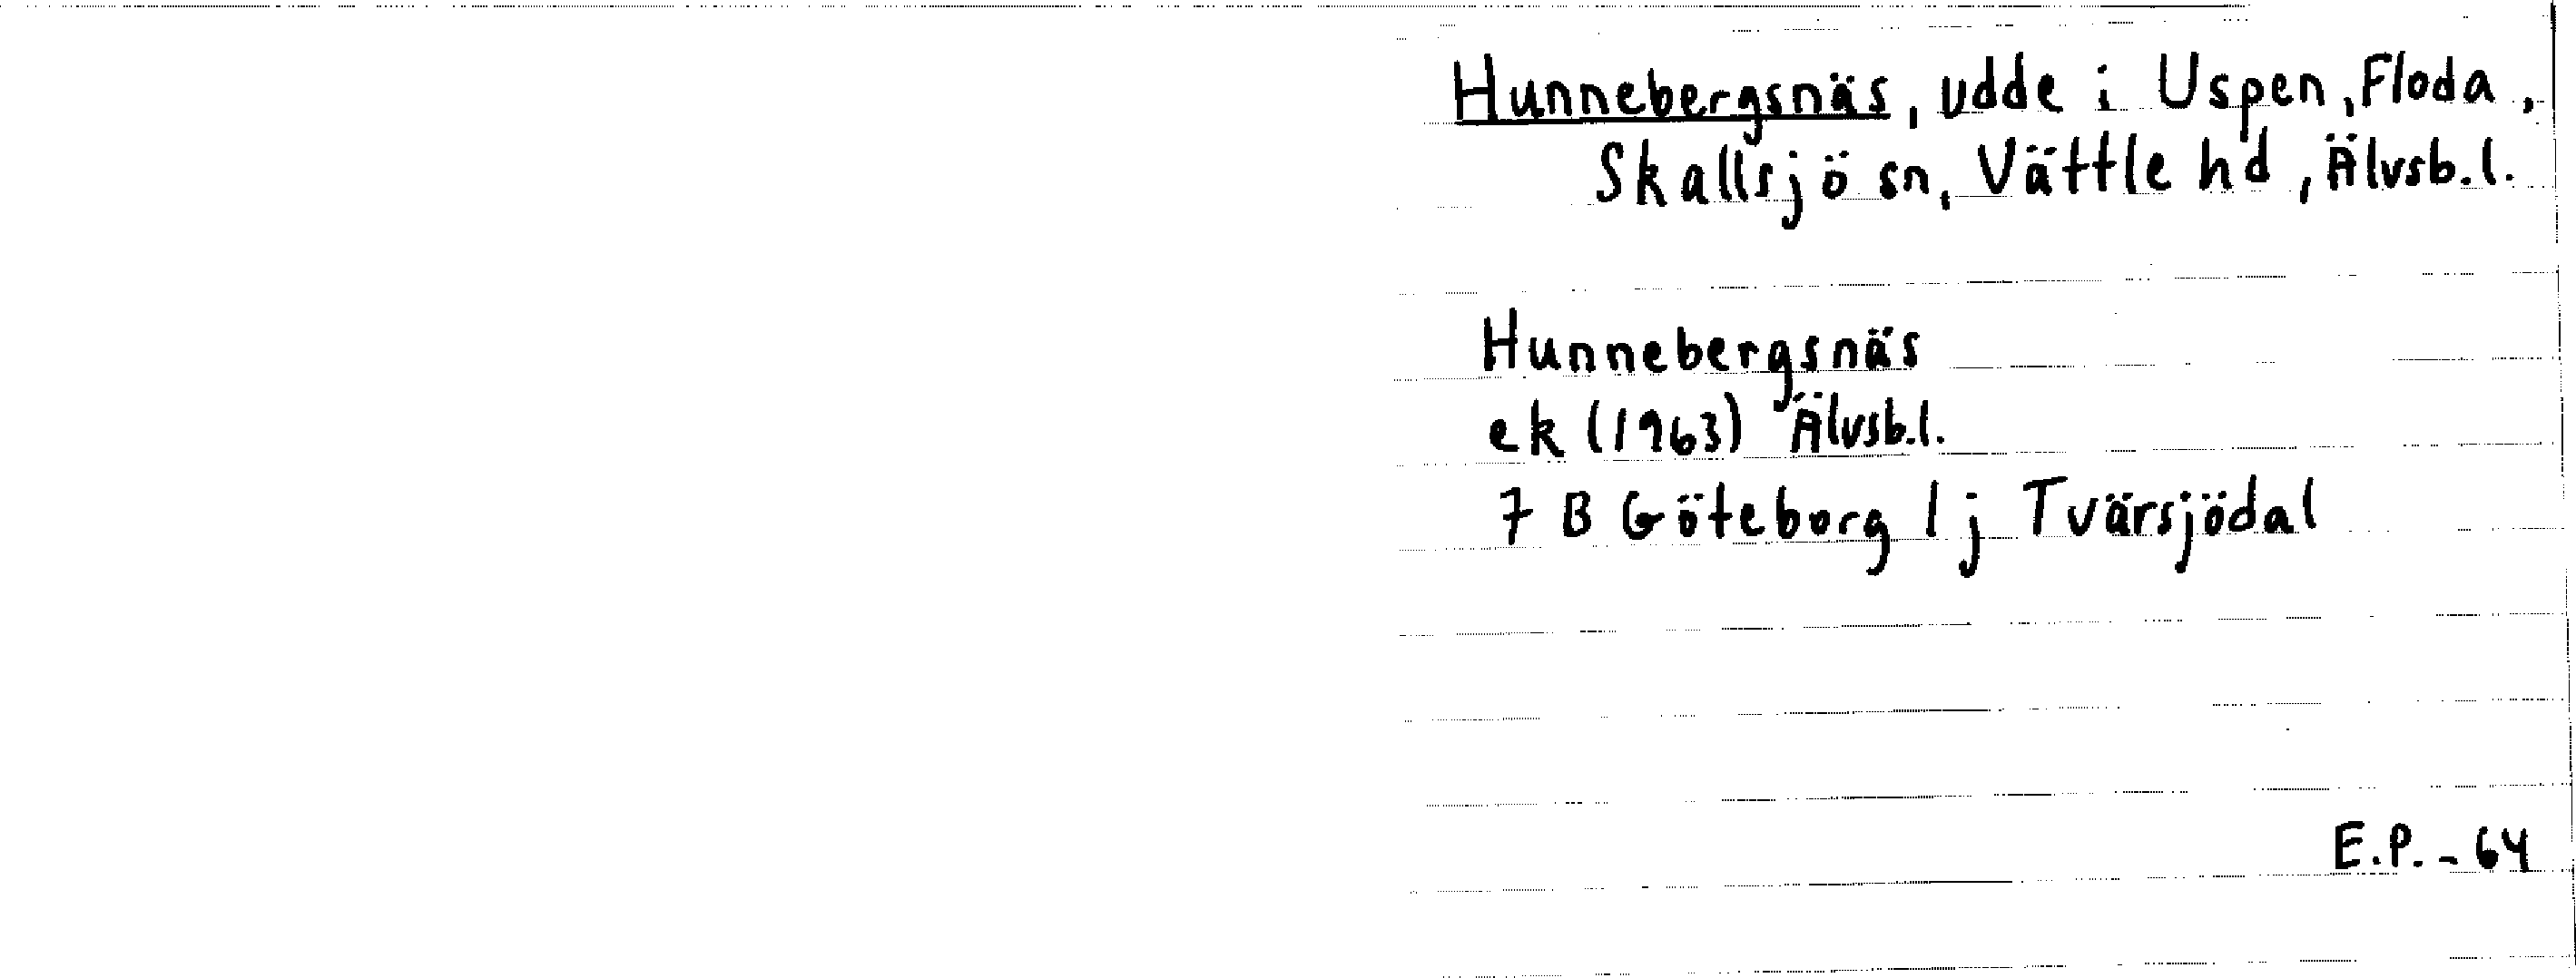 Hunnebergsnäs, udde i Uspen, Floda,
Skallsjö sn, Vättle hd, Älvsb.l.
Hunnebergsnäs
ek (1963) Älvsb.l.
7 B Göteborg 1 j Tvärsjödal
E.P. - 64